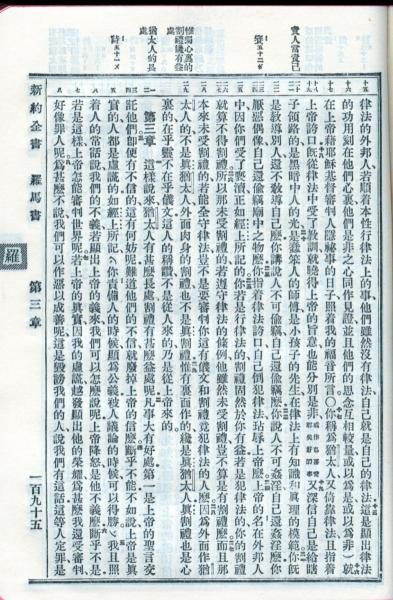 責人當責己
賽五十二5
惟獨心裏的
割禮纔有益
處
猶太人的長
處
詩五十一4
律法的外邦人若順着本性行律法上的事他們雖然沒有律法自己就是自己的律法這是顯出律法
的功用刻在他們心裏他們是非之心同作見證並且他們的思念互相較量或以爲是或以爲非就
在上帝藉耶穌基督審判人隱祕事的日子照着我的福音所言你稱爲猶太人又倚靠律法且指着
上帝誇口旣從律法中受了教訓就曉得上帝的旨意也能分別是非或作也喜愛那美好的事又深信自己是給瞎
子領路的是黑暗中人的光是蠢笨人的師傅是小孩子的先生在律法上有知識和眞理的模範你旣
是教導別人還不教導自己麽你講說人不可偷竊自己還偷竊麽你說人不可姦淫自己還姦淫麽你
厭惡偶像自己還偷竊廟中之物麽你指着律法誇口自己倒犯律法玷辱上帝麽上帝的名在外邦人
中因你們受了褻瀆正如經上所記的你若是行律法的割禮固然於你有益若是犯律法的你的割禮
就算不得割禮所以那未受割禮的若遵守律法的條例他雖然未受割禮豈不算是有割禮麽而且那
本來未受割禮的若能全守律法豈不是要審判你這有儀文和割禮竟犯律法的人麽因爲外面作猶
太人的不是眞猶太人外面肉身的割禮也不是眞割禮惟有裏面作的纔是眞猶太人眞割禮也是心
裏的在乎靈不在乎儀文這人的稱讚不是從人來的乃是從上帝來的
第三章 這樣說來猶太人有甚麽長處割禮有甚麽益處呢凡事大有好處第一是上帝的聖言交
託他們卽便有不信的這有何妨呢難道他們的不信就廢掉上帝的信麽斷乎不能不如說上帝是眞
實的人都是虛謊的如經上所記你責備人的時候顯爲公義被人議論的時候可以得勝我且照
着人的常話說我們的不義若顯出上帝的義來我們可以怎麽說呢上帝降怒是他不義麽斷乎不是
若是這樣上帝怎能審判世界呢若上帝的眞實因我的虛謊越發顯出他的榮耀爲甚麽我還受審判
好像罪人呢爲甚麽不說我們可以作惡以成善呢這是毀謗我們的人說我們有這話這等人定罪是
新約全書 羅馬書 第三章 一百九十五
羅